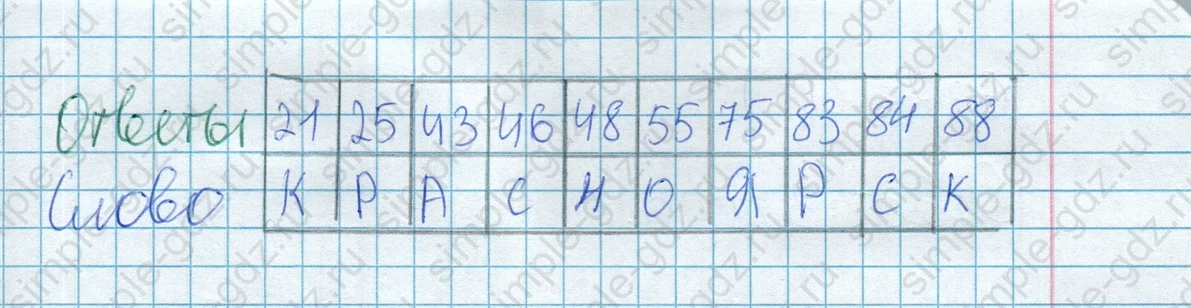 Ответы 21 25 43 46 48 55 75 83 84 88
Слово К Р А С Н О Я Р С К